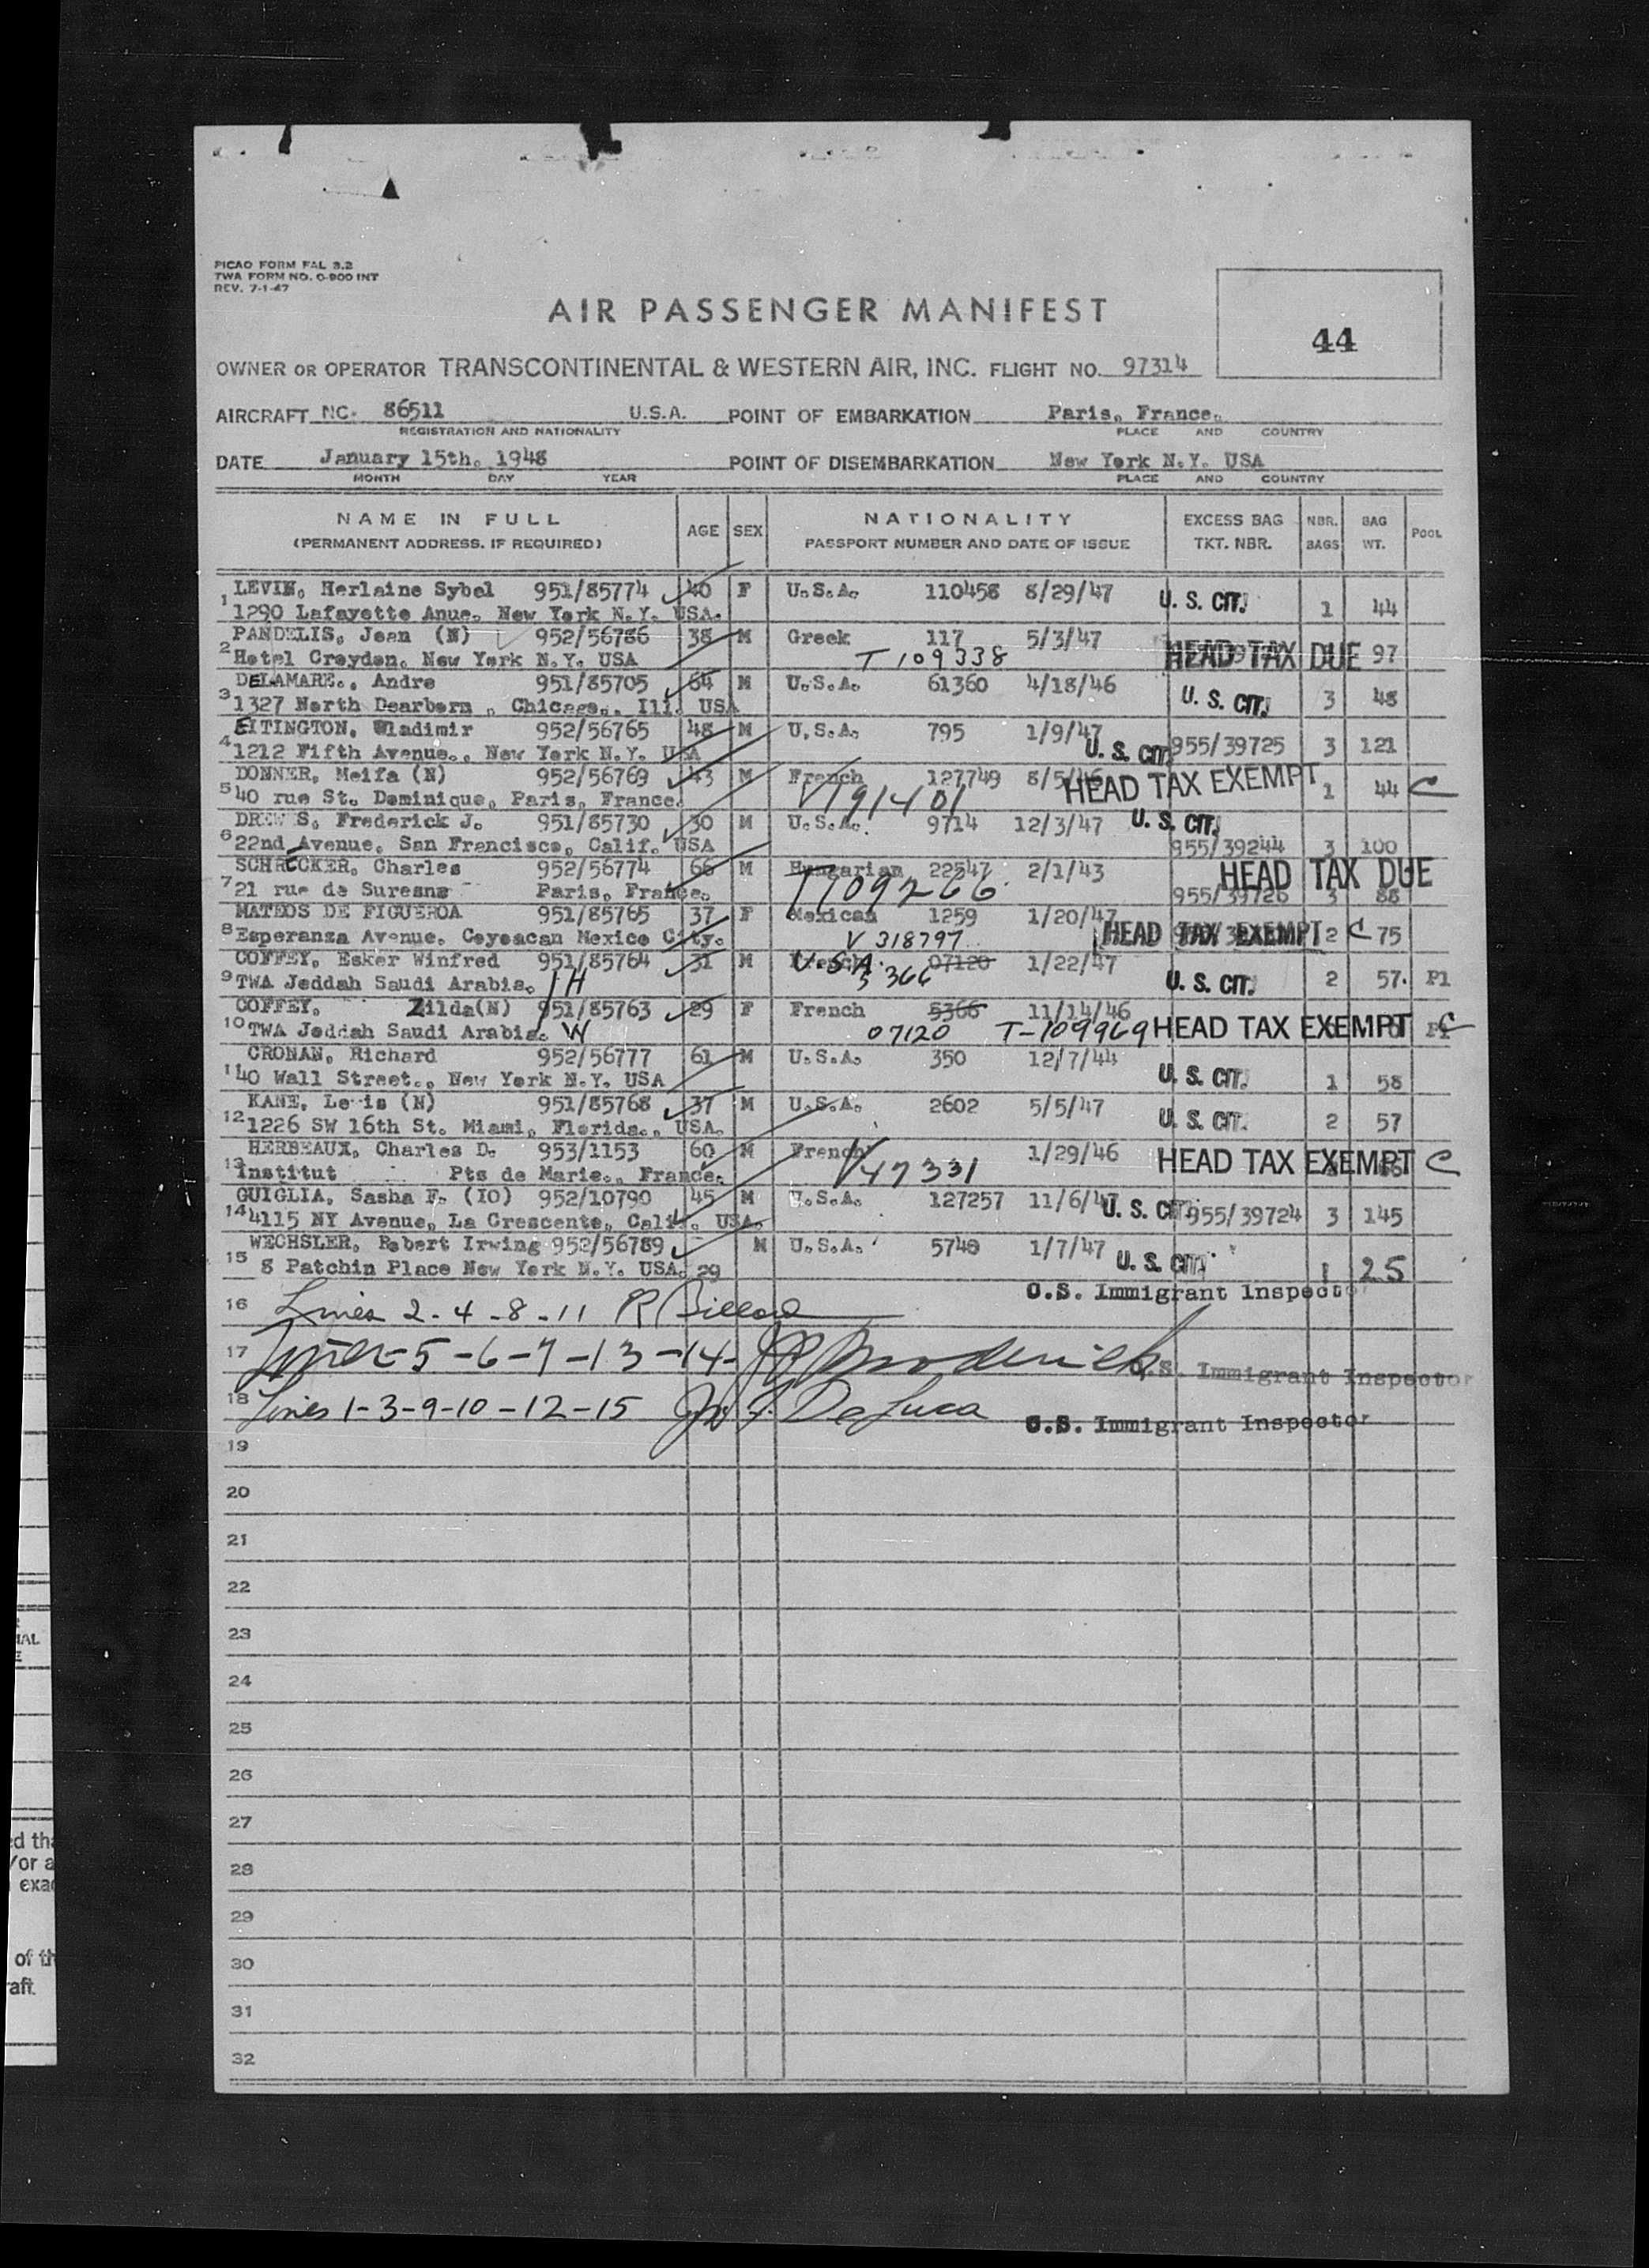 PICAO FORM FAL 3.2
TWA FORM NO. O-900 INT
REV. 7-1-47
AIR PASSENGER MANIFEST
44
OWNER OR OPERATOR TRANSCONTINENTAL & WESTERN AIR, INC. FLIGHT NO. 97314
AIRCRAFT NC- 86511 U.S.A. POINT OF EMBARKATION Paris, France.
REGISTRATION AND NATIONALITY PLACE AND COUNTRY
DATE January 15th. 1948 POINT OF DISEMBARKATION New York N.Y. USA
MONTH DAY YEAR PLACE AND COUNTRY
NAME IN FULL AGE SEX NATIONALITY EXCESS BAG NBR. BAG POOL
(PERMANENT ADDRESS. IF REQUIRED) PASSPORT NUMBER AND DATE OF ISSUE TKT. NBR. BAGS WT.
LEVIN, Herlaine Sybel 951/85774 40 F U.S.A. 110458 8/29/47 U. S. CIT.
1 1290 Lafayette Anue. New York N.Y. USA. 1 44
PANDELIS, Jean (N) 952/56786 38 M Greek 117 5/3/47 HEAD TAX DUE
2 Hotel Croydon, New York N.Y. USA T 109338 97
DELAMARE., Andre 951/85705 64 M U.S.A. 61360 4/18/46 U. S. CIT.
3 1327 North Dearborn , Chicago., Ill. USA 3 48
EITINGTON, Wladimir 952/56765 48 M U.S.A. 795 1/9/47 U. S. CIT
4 1212 Fifth Avenue., New York N.Y. USA 955/39725 3 121
DONNER, Meifa (N) 952/56769 43 M French 127749 8/5/46 HEAD TAX EXEMPT
5 40 rue St. Dominique, Paris, France. V191401 1 44 C
DREW S, Frederick J. 951/85730 30 M U.S.A. 9714 12/3/47 U. S. CIT.
6 22nd Avenue, San Francisco, Calif. USA 955/39244 3 100
SCHRECKER, Charles 952/56774 66 M Hungarian 22547 2/1/43 HEAD TAX DUE
7 21 rue de Suresne Paris, France. T109266 955/39726 3 88
MATEOS DE FIGUEROA 951/85765 37 F Mexican 1259 1/20/47 HEAD TAX EXEMPT
8 Esperanza Avenue. Coyoacan Mexico City. V 318797 2 C 75
COFFEY, Esker Winfred 951/85764 31 M French U.S.A. 07120 1/22/47 U. S. CIT.
9 TWA Jeddah Saudi Arabia. H 5366 2 57. P1
COFFEY, Zilda(N) 951/85763 29 F French 5366 11/14/46
10 TWA Jeddah Saudi Arabia. W 07120 T-109969 HEAD TAX EXEMPT C
CRONAN, Richard 952/56777 61 M U.S.A. 350 12/7/44 U. S. CIT.
11 40 Wall Street., New York N.Y. USA 1 58
KANE, Lewis (N) 951/85768 37 M U.S.A. 2602 5/5/47 U. S. CIT.
12 1226 SW 16th St. Miami, Florida., USA. 2 57
HERBEAUX, Charles D. 953/1153 60 M French 1/29/46 HEAD TAX EXEMPT C
13 Institut Pts de Marie., France. V47331
GUIGLIA, Sasha F. (IO) 952/10790 45 M U.S.A. 127257 11/6/47 U. S. CIT.
14 4115 NY Avenue, La Crescente, Calif. USA. 955/39724 3 145
WECHSLER, Robert Irwing 952/56789 M U.S.A. 5740 1/7/47 U. S. CIT.
15 8 Patchin Place New York N.Y. USA. 29 1 25
U.S. Immigrant Inspector
16 Lines 2-4-8-11 R Billard
17 Lines-5-6-7-13-14- Broderick U.S. Immigrant Inspector
18 Lines 1-3-9-10-12-15 Jn F. DeLuca U.S. Immigrant Inspector
19
20
21
22
23
24
25
26
27
28
29
30
31
32